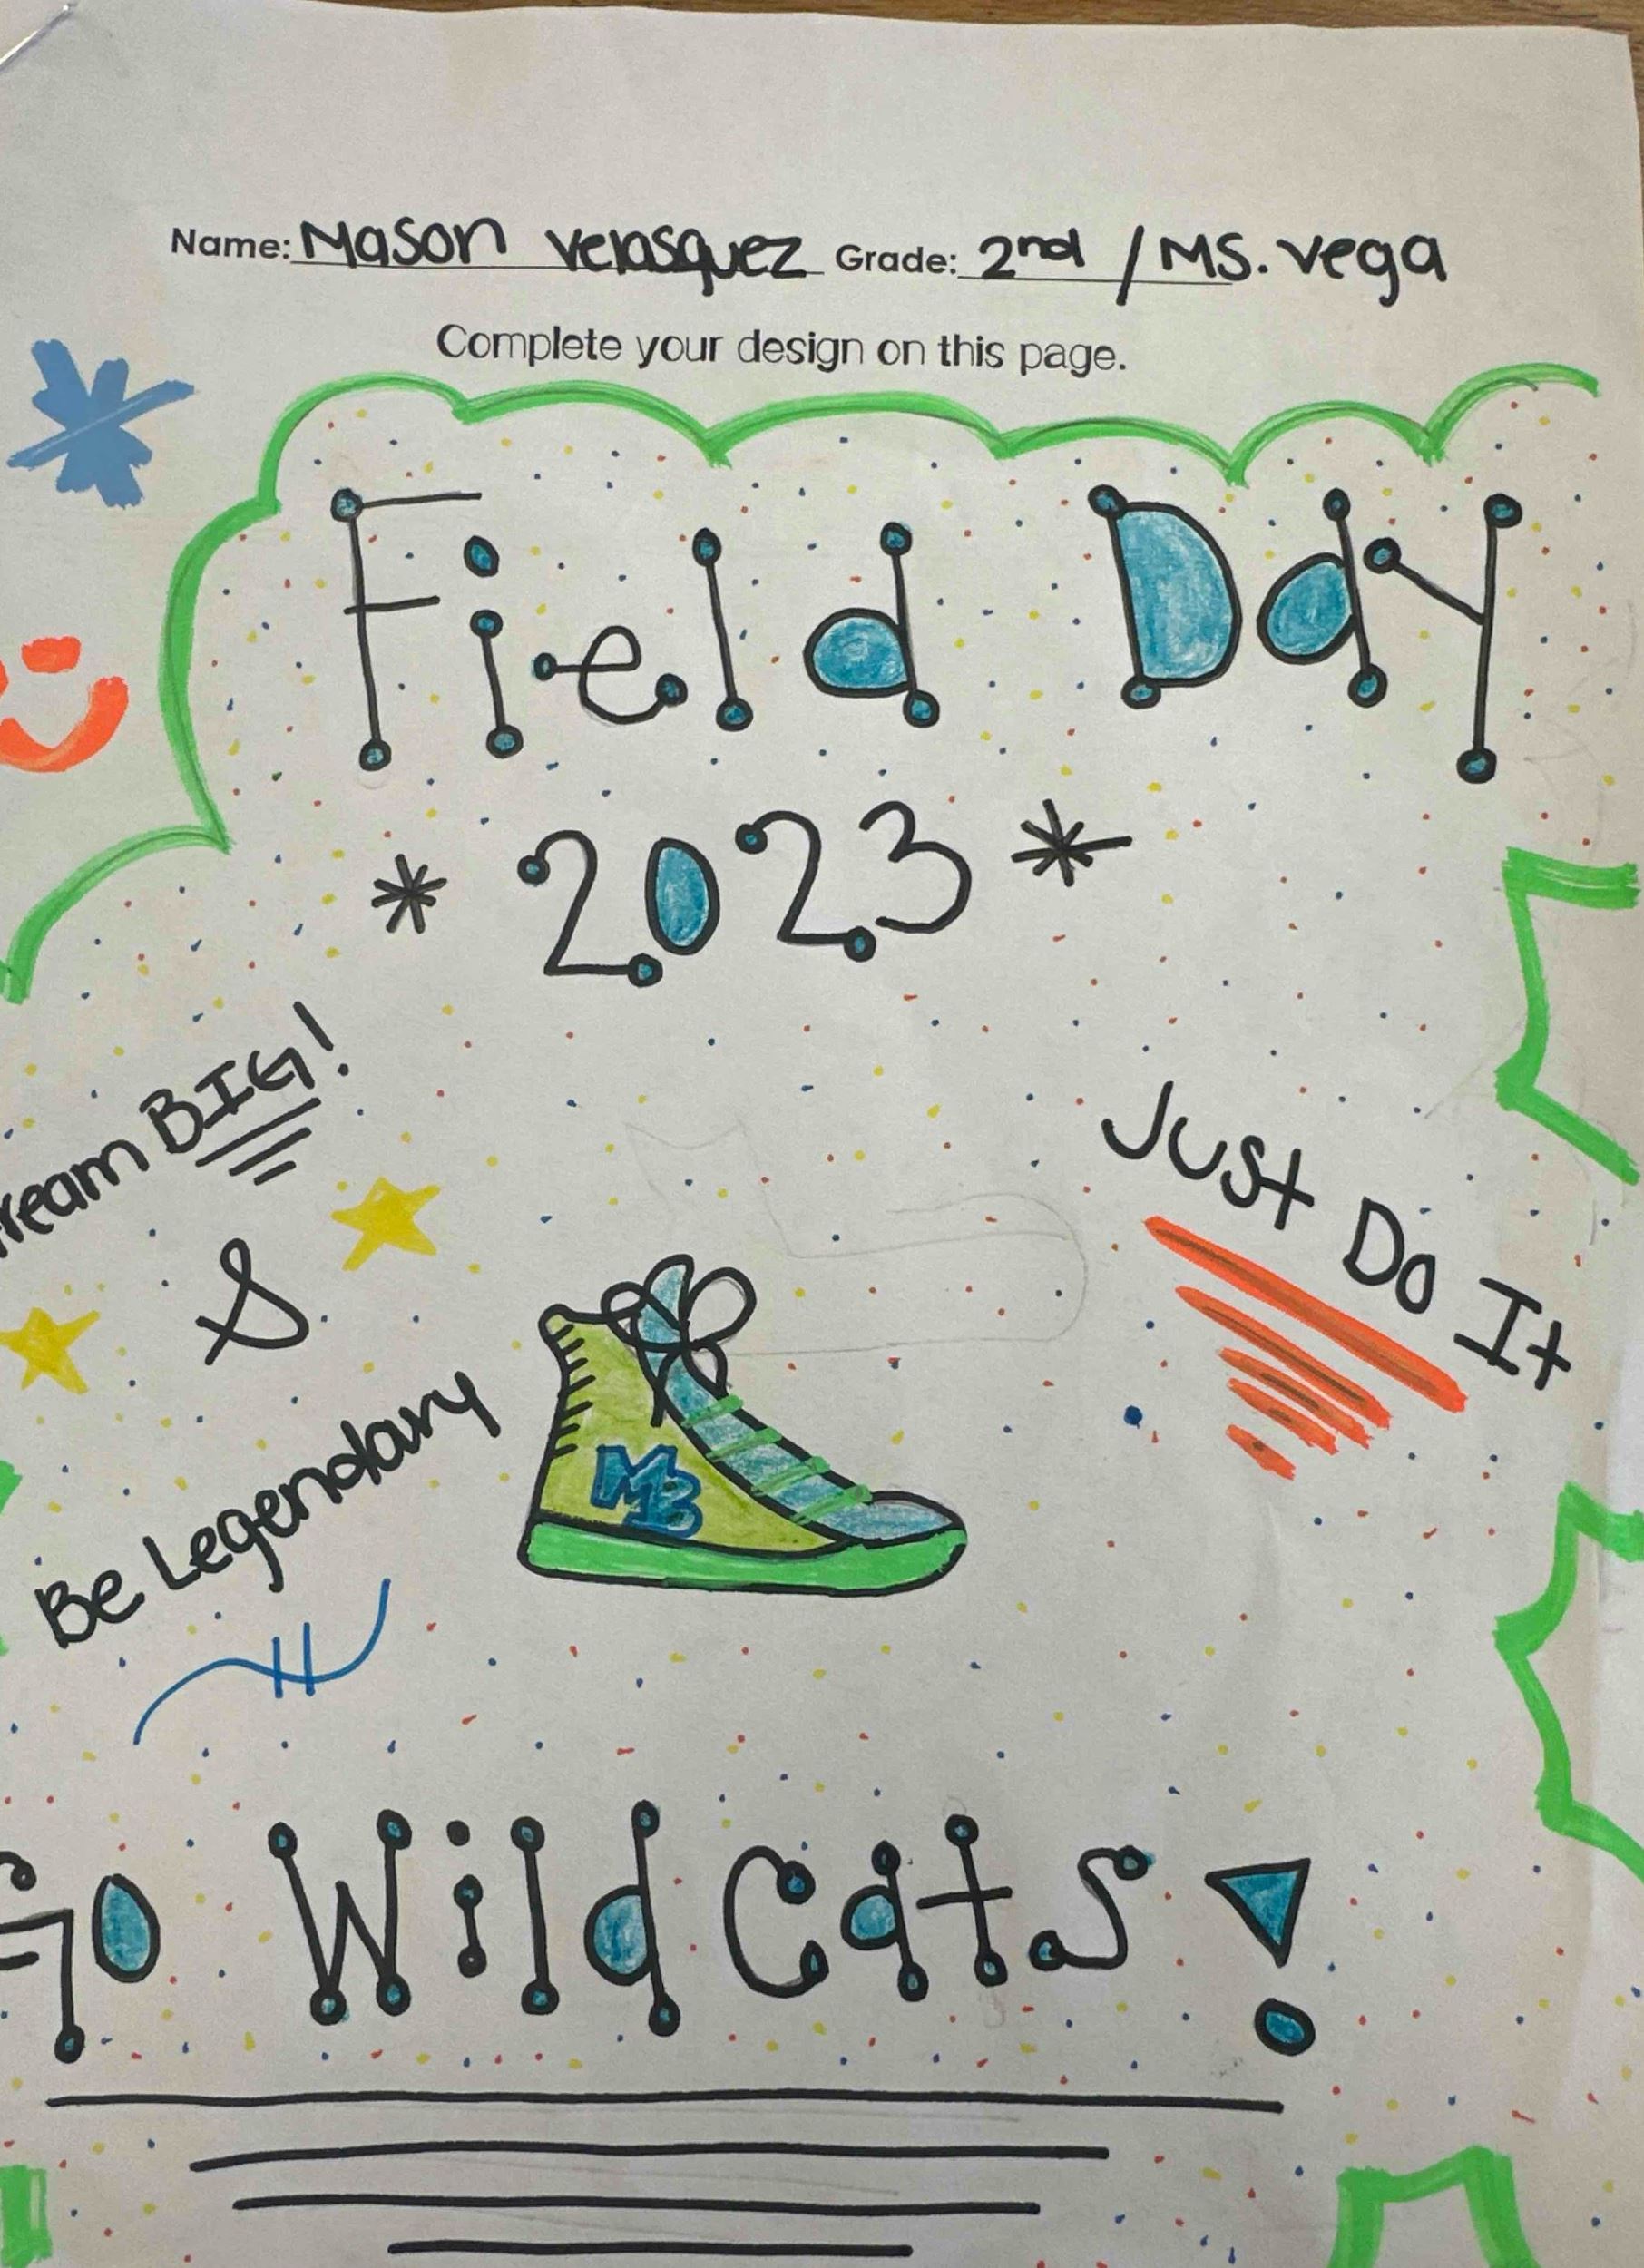 Name: Mason Velasquez Grade: 2nd / Ms. Vega
Complete your design on this page.
Field Day
* 2023 *
ream BIG!
&
Be Legendary
Just Do It
MB
Go Wildcats!